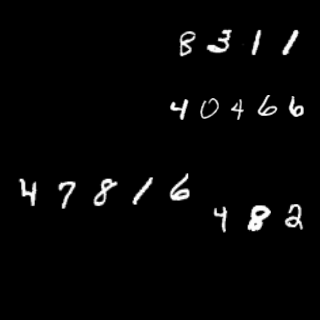 8311
40466
47816
482